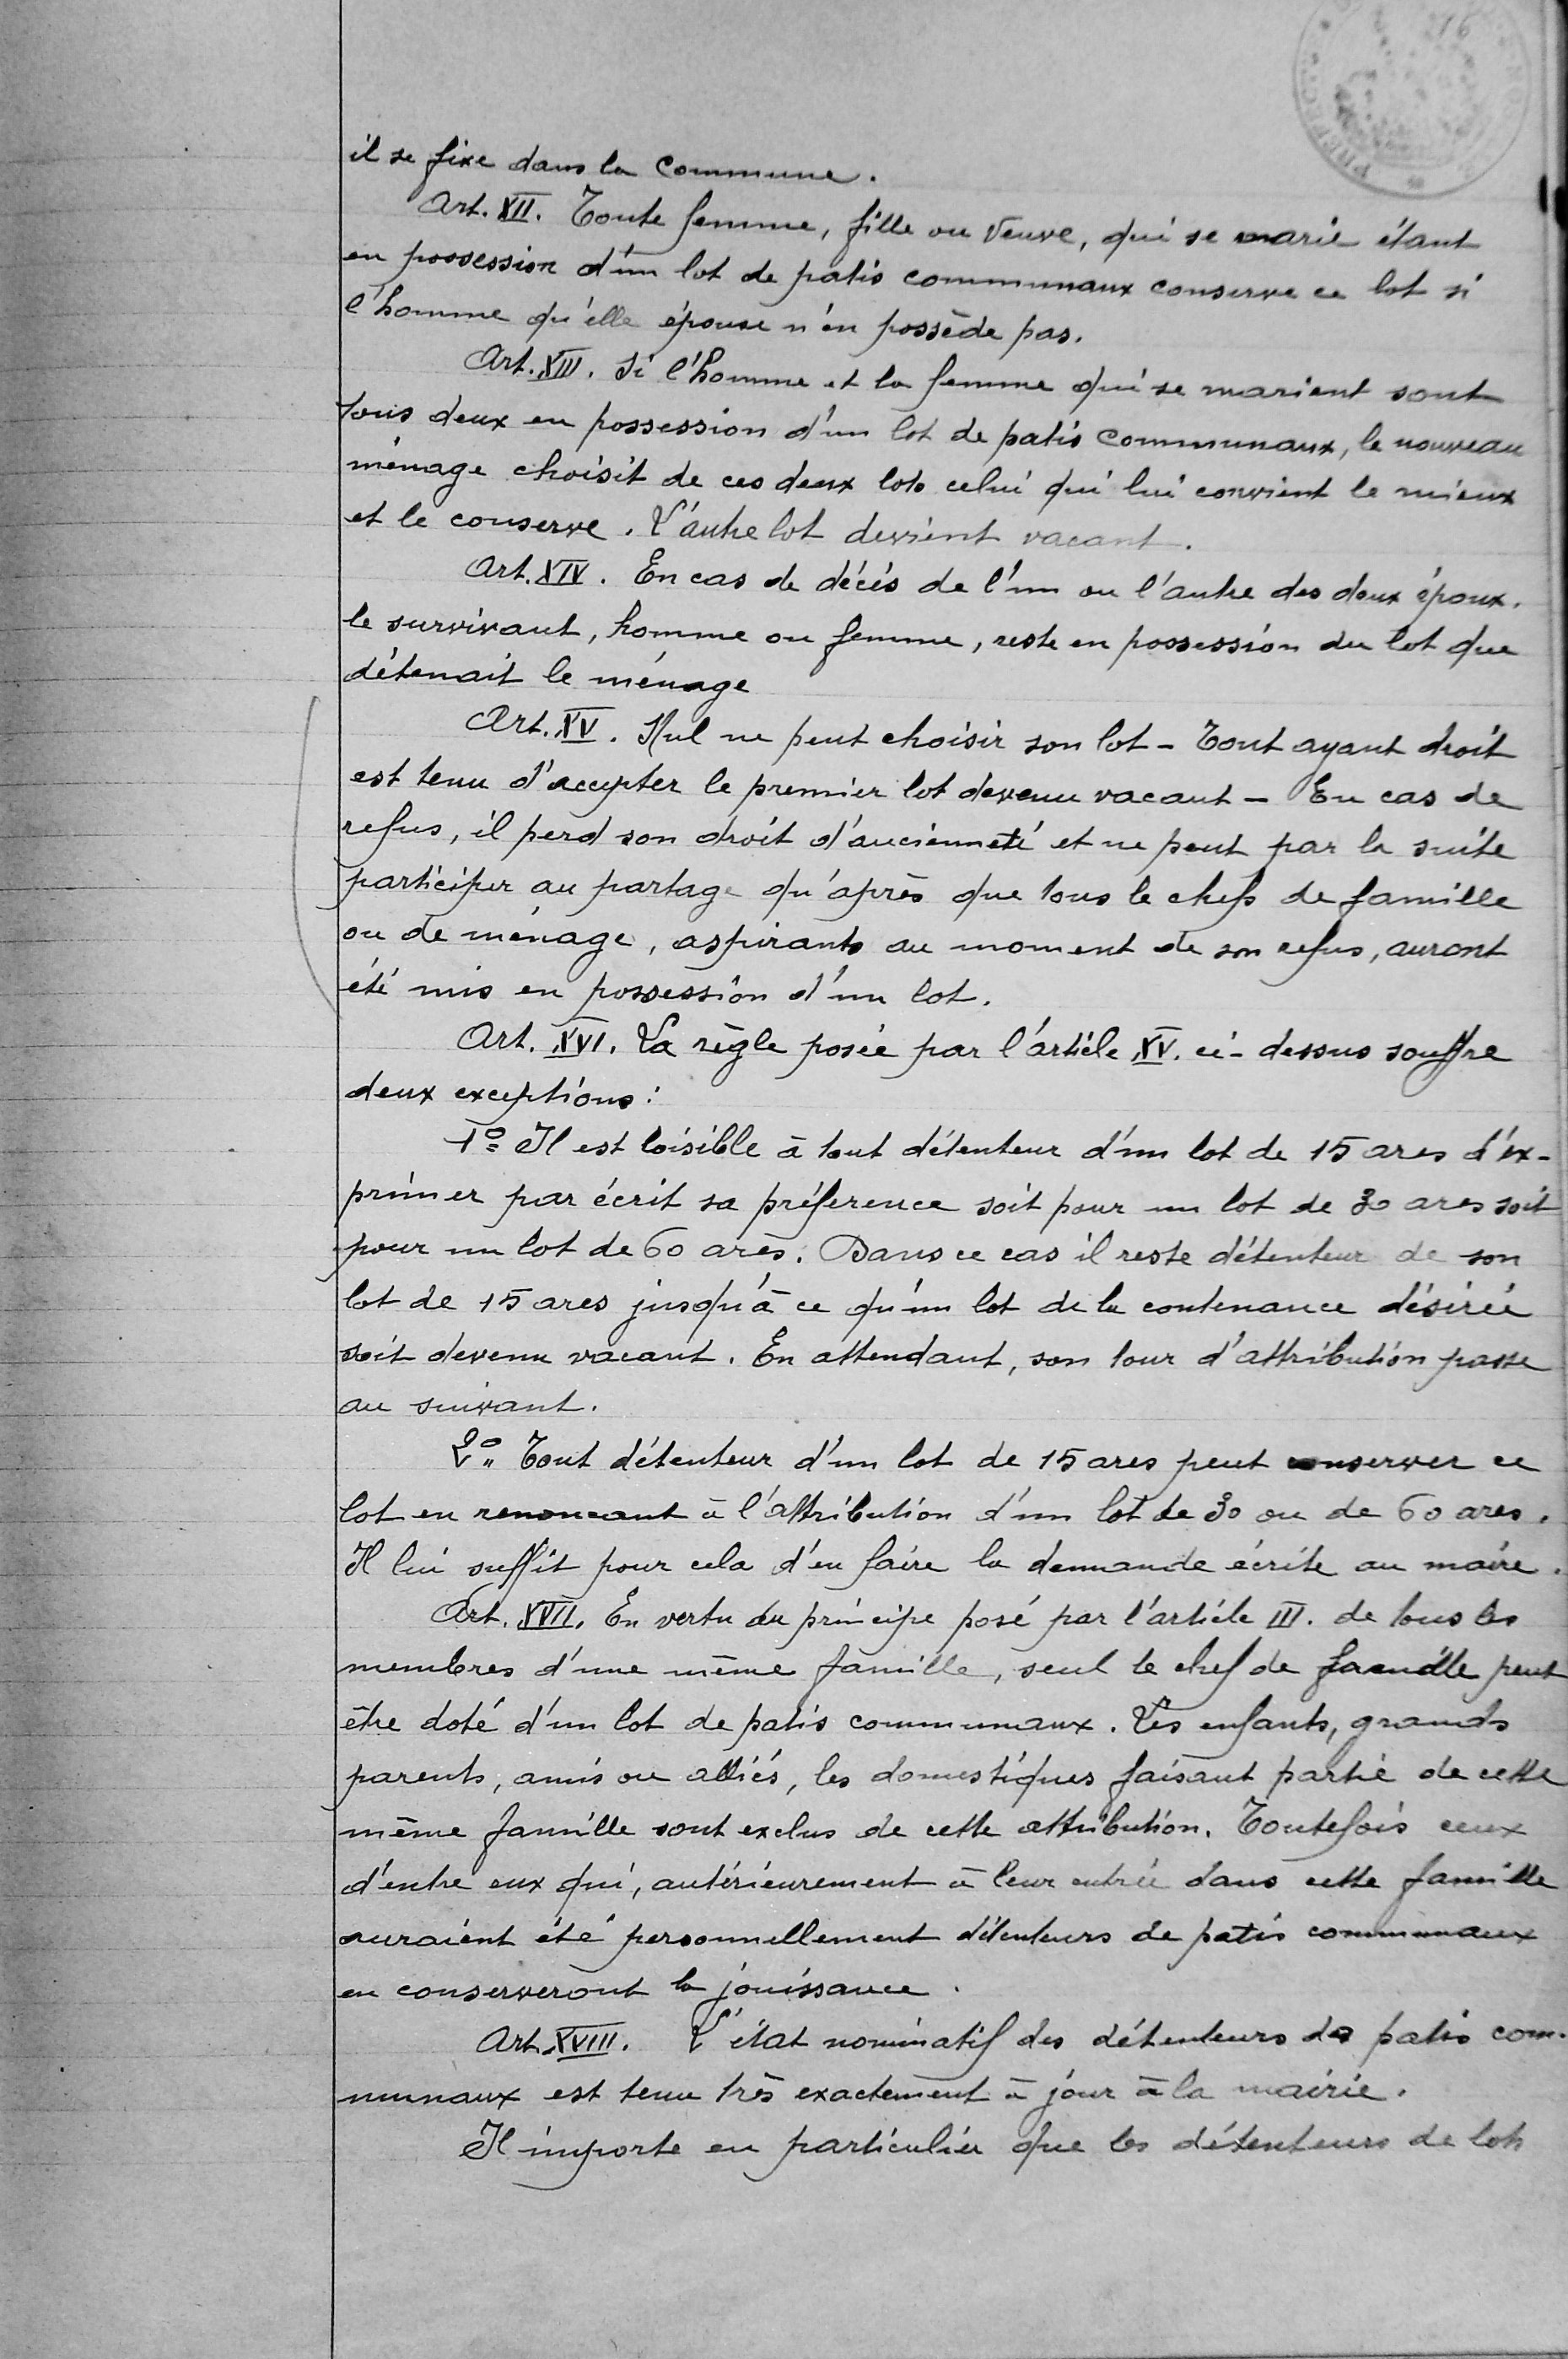 16
il se fixe dans la Commune.
Art. XII. Toute femme, fille ou veuve, qui se marie étant
en possession d'un lot de patis communaux conserve ce lot si
l'homme qu'elle épouse n'en possède pas.
Art. XIII. Si l'homme et la femme qui se marient sont
tous deux en possession d'un lot de patis communaux, le nouveau
ménage choisit de ces deux lots celui qui lui convient le mieux
et le conserve. L'autre lot devient vacant.
Art. XIV. En cas de décès de l'un ou l'autre des deux époux.
le survivant, homme ou femme, reste en possession du lot que
détenait le ménage
Art. XV. Nul ne peut choisir son lot - Tout ayant droit
est tenu d'accepter le premier lot devenu vacant - En cas de
refus, il perd son droit d'ancienneté et ne peut par la suite
participer au partage qu'après que tous le chefs de famille
ou de ménage, aspirants au moment de son refus, auront
été mis en possession d'un lot.
Art. XVI. La règle posée par l'article XV. ci-dessus souffre
deux exceptions:
1º Il est loisible à tout détenteur d'un lot de 15 ares d'ex-
primer par écrit sa préference soit pour un lot de 30 ares soit
pour un lot de 60 ares. Dans ce cas il reste détenteur de son
lot de 15 ares jusqu'à ce qu'un lot de la contenance désirée
soit devenu vacant. En attendant, son tour d'attribution passe
au suivant.
2º Tout détenteur d'un lot de 15 ares peut conserver ce
lot en renoncant à l'attribution d'un lot de 30 ou de 60 ares.
Il lui suffit pour cela d'en faire la demande écrite au maire.
Art. XVII. En vertu du principe posé par l'article III. de tous les
membres d'une même famille, seul le chef de famille peut
être doté d'un lot de patis communaux. Les enfants, grands
parents, amis ou alliés, les domestiques faisant partie de cette
même famille sont exclus de cette attribution. Toutefois ceux
d'entre eux qui, antérieurement à leur entrée dans cette famille
auraient été personnellement détenteurs de patis communaux
en conserveront la jouissance.
Art. XVIII. L'état nominatif des détenteurs de patis com-
munaux est tenu très exactement à jour à la mairie.
Il importe en particulier que les détenteurs de lots